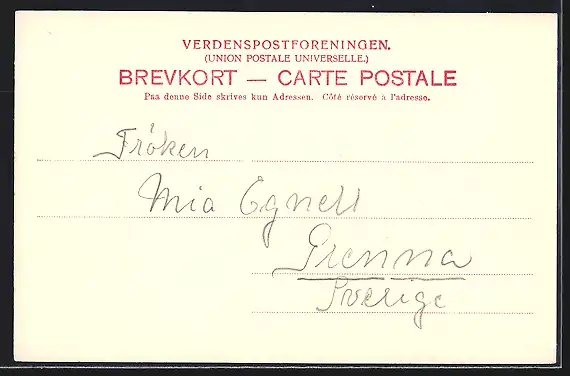 VERDENSPOSTFORENINGEN.
(UNION POSTALE UNIVERSELLE.)
BREVKORT — CARTE POSTALE
Paa denne Side skrives kun Adressen. Côté réservé à l'adresse.
Fröken
Mia Egnell
Grenna
Sverige